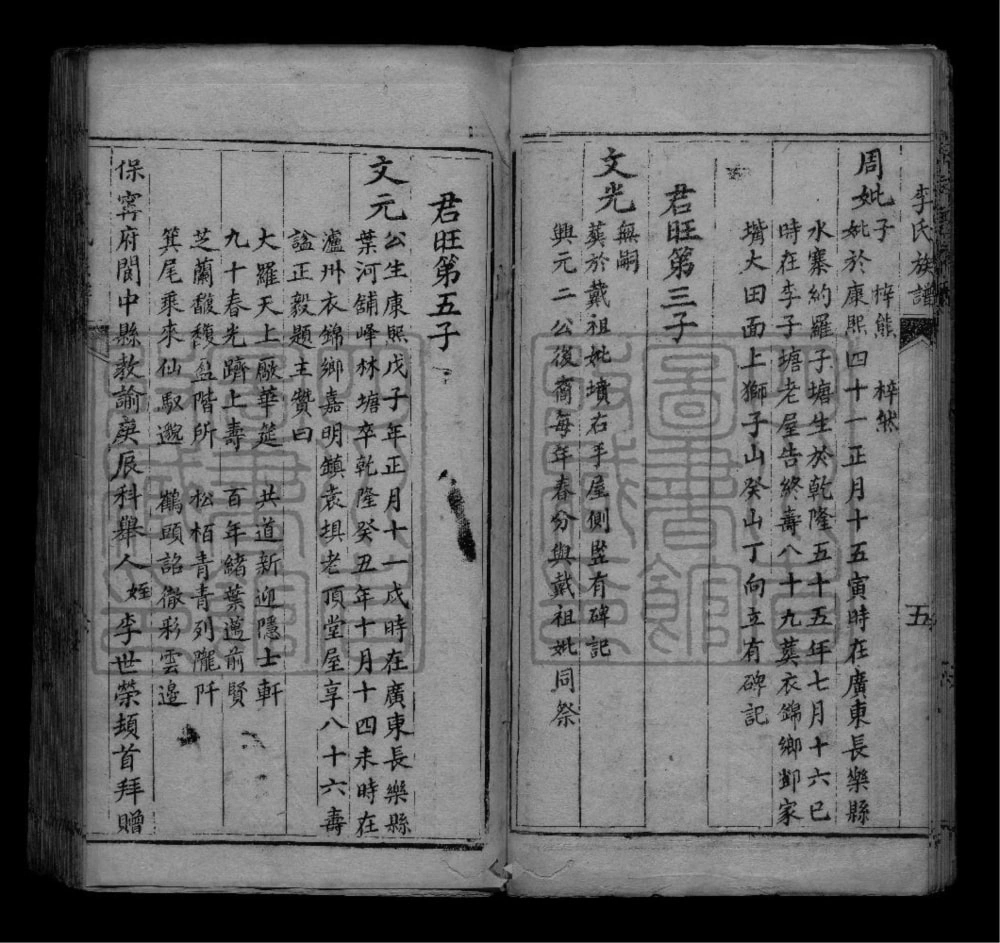 李氏族譜
五
周妣
子 梓熊 梓然
妣於康熙四十一正月十五寅時在廣東長樂縣
水寨約羅子塘生於乾隆五十五年七月十六巳
時在李子塘老屋告終壽八十九葬衣錦鄉鄧家
嘴大田面上獅子山癸山丁向立有碑記
君旺第三子
文光
無嗣
葬於戴祖妣墳右手屋側豎有碑記
興元二公後裔每年春分與戴祖妣同祭
君旺第五子
文元
公生康熙戊子年正月十一戌時在廣東長樂縣
葉河舖峰林塘卒乾隆癸丑年十月十四未時在
瀘州衣錦鄉嘉明鎮袁垻老頂堂屋享八十六壽
諡正毅題主贊曰
大羅天上厰華筵 共道新迎隱士軒
九十春光躋上壽 百年緒葉邁前賢
芝蘭馥馥盈階所 松栢青青列隴阡
箕尾乘來仙馭邈 鶴頭詔徹彩雲邉
保寧府閬中縣教諭庚辰科舉人姪李世榮頓首拜贈
圖書館